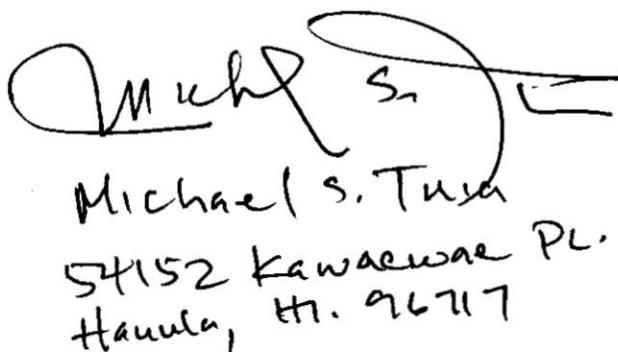 Michl S.
Michael S. Tusa
54152 Kawaewae PL.
Hauula, HI. 96717